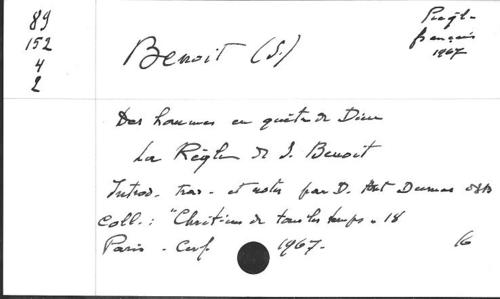 89
152
4
2
Benoit (S.)
Règl.
français
1967
Des hommes en quête de Dieu
La Règle de S. Benoit
Introd. trad. et notes par D. Ant Dumas OSB
Coll.: "Chrétiens de tous les temps" 18
Paris - Cerf 1967.
16